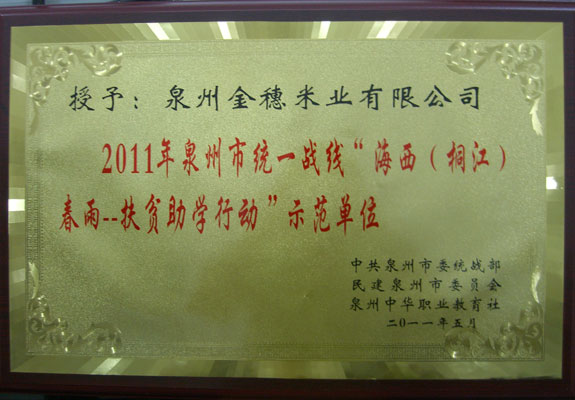 授予：泉州金穗米业有限公司
2011年泉州市统一战线“海西（桐江）
春雨--扶贫助学行动”示范单位
中共泉州市委统战部
民建泉州市委员会
泉州中华职业教育社
二〇一一年五月